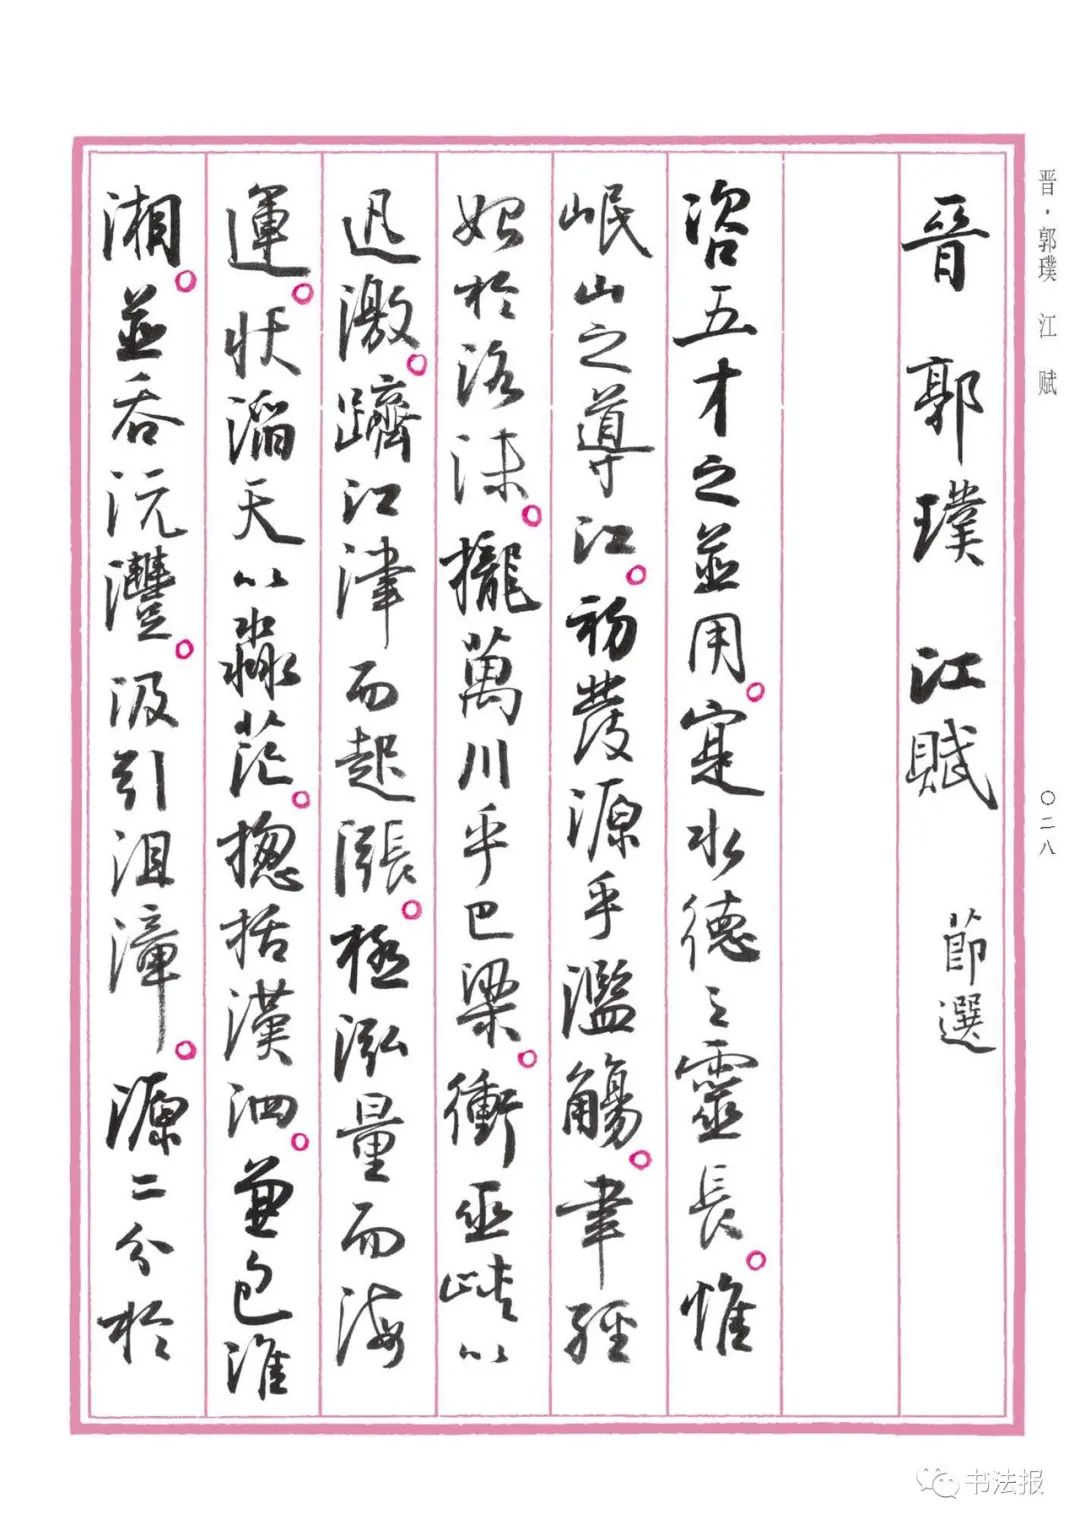 晋·郭璞 江赋
〇二八
晉 郭璞 江賦 節選
咨五才之並用。寔水德之靈長。惟
岷山之導江。初發源乎濫觴。聿經
始於洛沫。攏萬川乎巴梁。衝巫峽以
迅激。躋江津而起漲。極泓量而海
運。狀滔天以淼茫。摠括漢泗。兼包淮
湘。並吞沅澧。汲引沮漳。源二分於
书法报